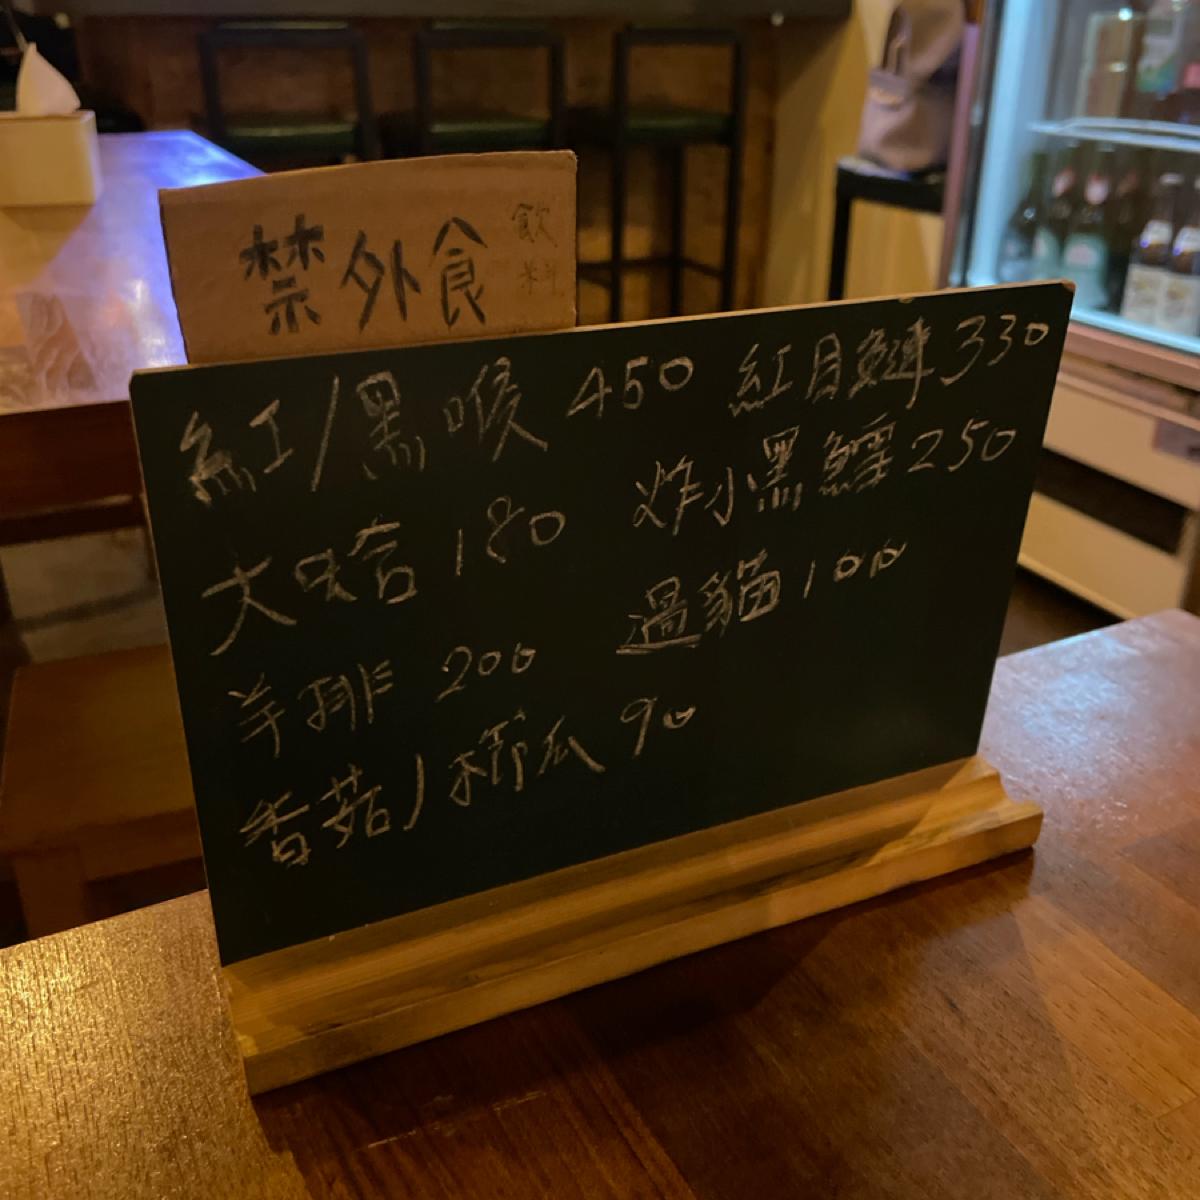 禁外食 飲料
紅/黑喉 450 紅目鰱 330
大蛤 180 炸小黑鱈 250
羊排 200 過貓 100
香菇/櫛瓜 90